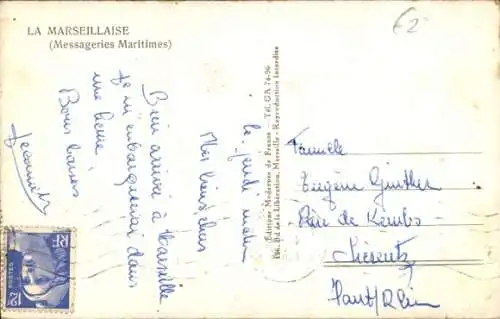 LA MARSEILLAISE
(Messageries Maritimes)
£2
le jeudi matin
Mes biens chers
Bien arrivée à Marseille
Je m'embarquerai dans
une heure.
Bons baisers
Jeannette
Editions Modernes de France - Tél. GA 74-96
Bd de la Libération, Marseille - Reproduction Interdite
Famille
Eugène Ginther
Rue de Kembs
Sierentz
Haut/Rhin
RF
POSTES
12F